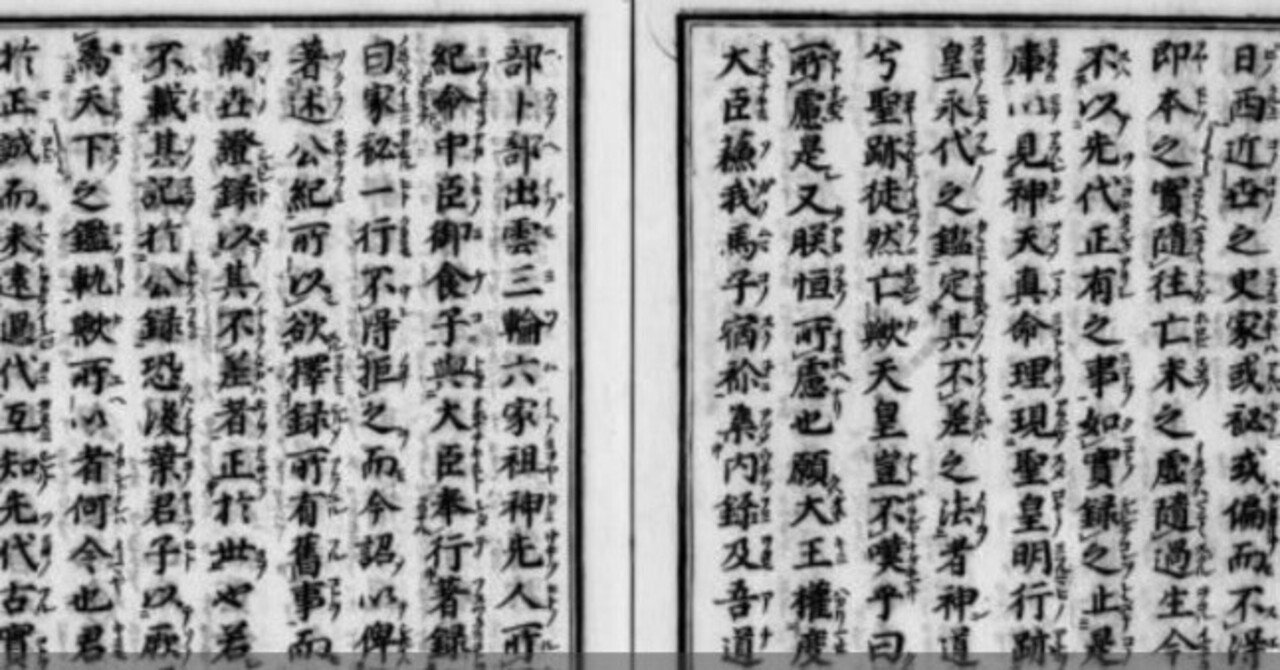 日西近世之史家或秘或偏而不淂
即本之實隨往亡末之虛隨過生今
不以先代正有之事如實録之止是
庫以見神天真命理現聖皇明行跡
皇永代之鑑定其不差之法者神道
兮聖跡徒然亡歟天皇豈不嘆乎曰
所慮是又朕恒所慮也願大王權度
大臣蘓我馬子宿祢集内録及吾道
部卜部出雲三輪六家祖神先人所
紀命中臣御食子與大臣奉行著録
曰家秘一行不淂拒之而今詔以俾
著述公紀所以欲擇録所有舊事而
萬世證録以其不差者正於世也若
不載其記於公録恐後葉君子以厥
為天下之鑑軌歟所以者何今也君
於正誠而未遠過代互知先代古實